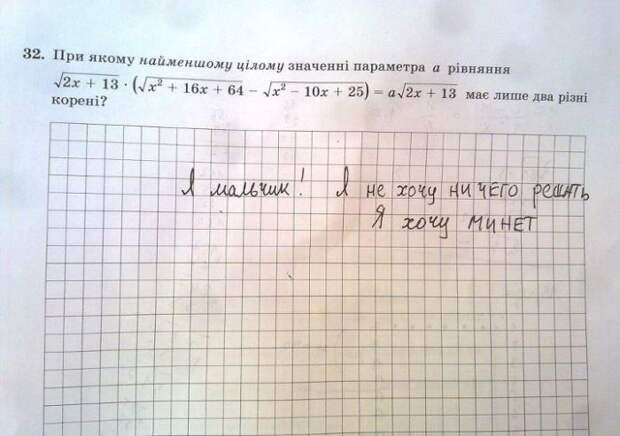 32. При якому найменшому цілому значенні параметра a рівняння
√(2x + 13) · (√(x² + 16x + 64) − √(x² − 10x + 25)) = a√(2x + 13) має лише два різні
корені?
Я мальчик! Я не хочу ничего решать
Я хочу минет